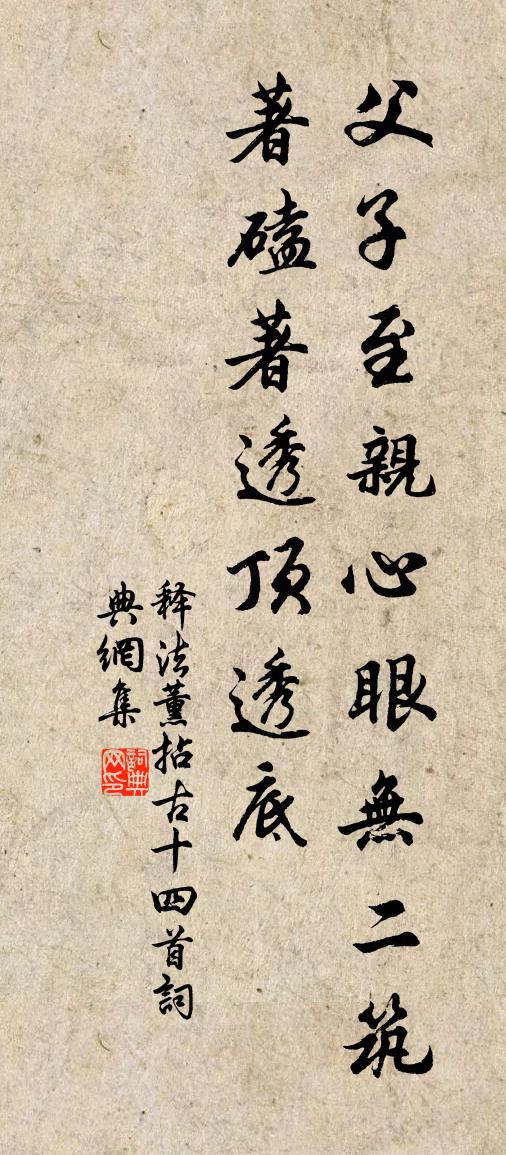 父子至親心眼無二筑
著磕著透頂透底
释法薰拈古十四首詞
典網集
詞典网印